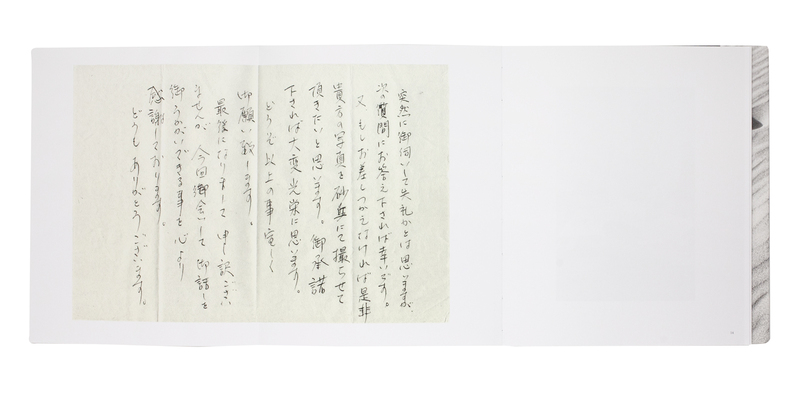 突然に御伺いして失礼かとは思いますが、
次の質問にお答え下されば幸いです。
又、もしお差しつかえなければ是非
貴方の写真を砂丘にて撮らせて
頂きたいと思います。御承諾
下されば大変光栄に思います。
どうぞ以上の事宜しく
御願い致します。
最後になりまして申し訳ござい
ませんが、今回御会いして御話しを
御うかがいできる事を心より
感謝しております。
どうも ありがとうございます。